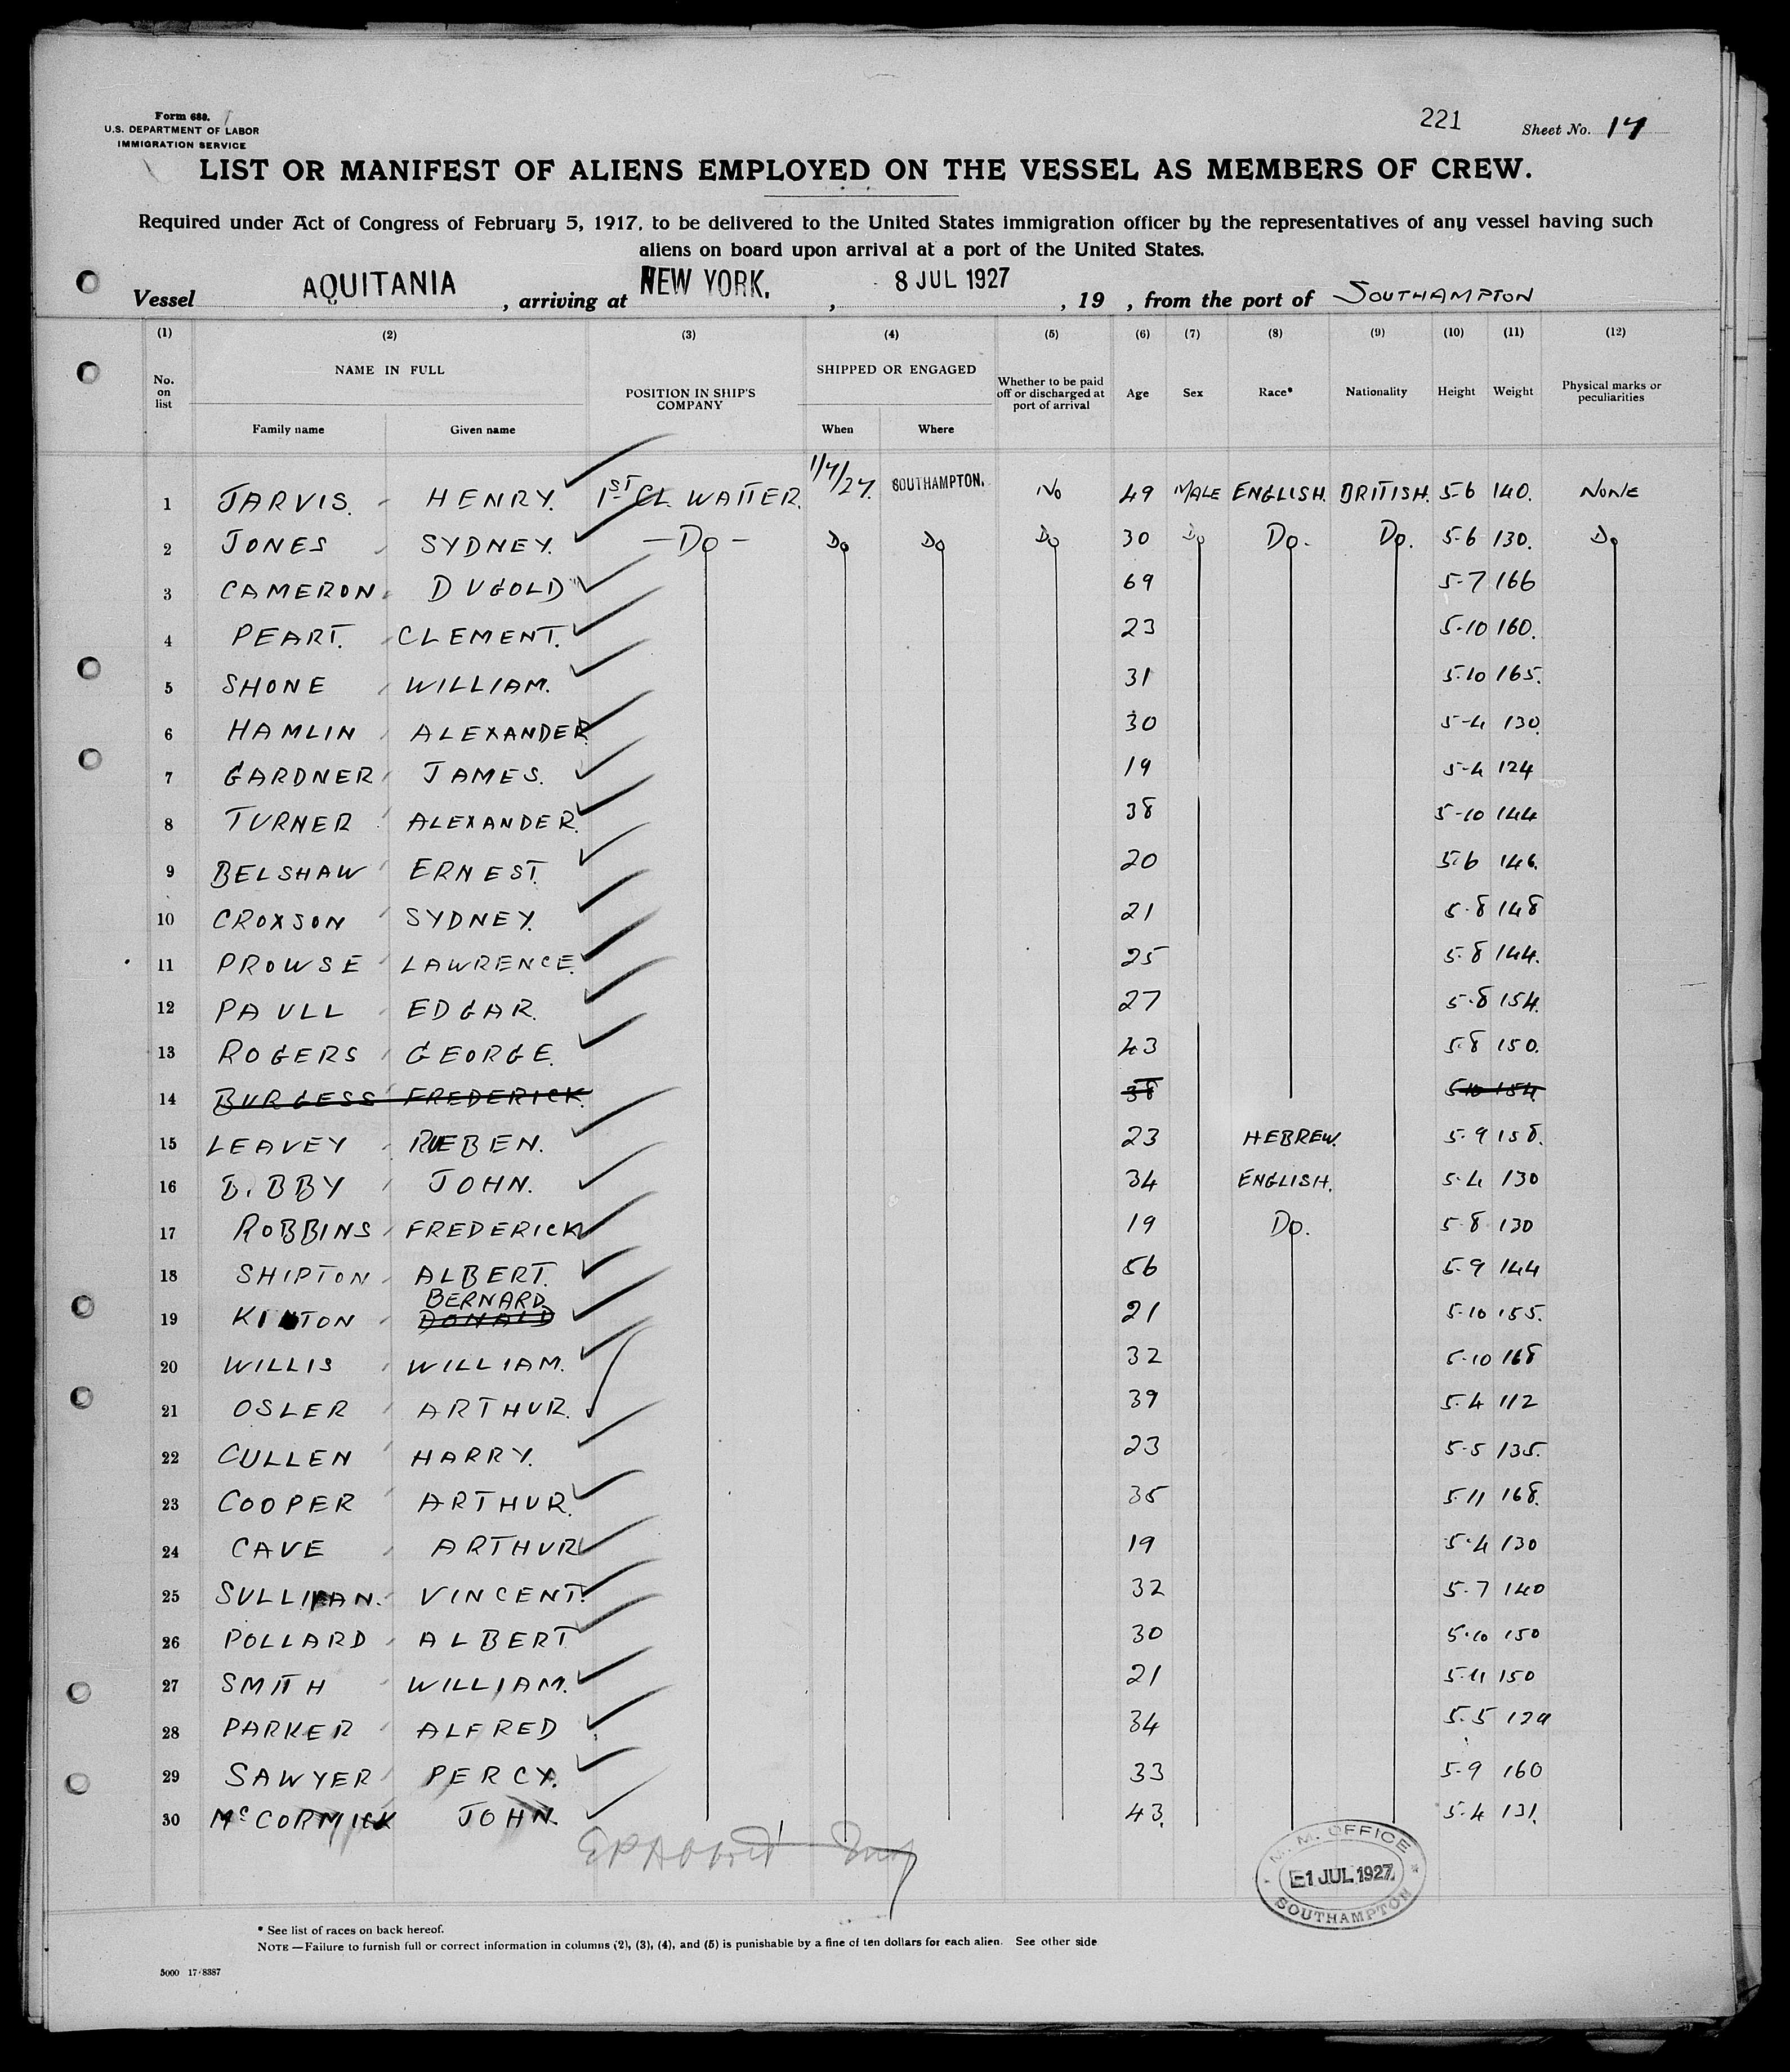 Form 680.
U.S. DEPARTMENT OF LABOR
IMMIGRATION SERVICE
221
Sheet No. 14
LIST OR MANIFEST OF ALIENS EMPLOYED ON THE VESSEL AS MEMBERS OF CREW.
Required under Act of Congress of February 5, 1917, to be delivered to the United States immigration officer by the representatives of any vessel having such
aliens on board upon arrival at a port of the United States.
Vessel AQUITANIA, arriving at NEW YORK, 8 JUL 1927, 19 , from the port of SOUTHAMPTON
(1) (2) (3) (4) (5) (6) (7) (8) (9) (10) (11) (12)
No. on list NAME IN FULL POSITION IN SHIP'S COMPANY SHIPPED OR ENGAGED Whether to be paid off or discharged at port of arrival Age Sex Race* Nationality Height Weight Physical marks or peculiarities
Family name Given name When Where
1 JARVIS. HENRY. 1ST CL. WAITER. 1/7/27. SOUTHAMPTON. No 49 MALE ENGLISH. BRITISH. 5-6 140. NONE
2 JONES SYDNEY. —Do— Do Do Do 30 Do Do. Do. 5-6 130. Do
3 CAMERON. DUGOLD 69 5-7 166
4 PEART. CLEMENT. 23 5-10 160.
5 SHONE WILLIAM. 31 5-10 165.
6 HAMLIN ALEXANDER 30 5-4 130.
7 GARDNER JAMES. 19 5-4 124
8 TURNER ALEXANDER. 38 5-10 144
9 BELSHAW ERNEST. 20 5-6 146.
10 CROXSON SYDNEY. 21 5-8 148
11 PROWSE LAWRENCE. 25 5-8 144.
12 PAULL EDGAR. 27 5-8 154.
13 ROGERS GEORGE. 43 5-8 150.
14 BURGESS FREDERICK. 38 5-10 154.
15 LEAVEY RUEBEN. 23 HEBREW. 5-9 158.
16 BIBBY JOHN. 34 ENGLISH. 5-4 130
17 ROBBINS FREDERICK 19 Do. 5-8 130
18 SHIPTON ALBERT. 56 5-9 144
19 KINTON BERNARD. DONALD 21 5-10 155.
20 WILLIS WILLIAM. 32 5-10 168
21 OSLER ARTHUR. 39 5-4 112
22 CULLEN HARRY. 23 5-5 135.
23 COOPER ARTHUR. 35 5-11 168.
24 CAVE ARTHUR 19 5-4 130
25 SULLIVAN. VINCENT. 32 5-7 140
26 POLLARD ALBERT 30 5-10 150
27 SMITH WILLIAM. 21 5-11 150
28 PARKER ALFRED 34 5-5 129
29 SAWYER PERCY. 33 5-9 160
30 McCORMICK JOHN. 43. 5-4 131.
M. M. OFFICE
1 JUL 1927
SOUTHAMPTON
* See list of races on back hereof.
NOTE—Failure to furnish full or correct information in columns (2), (3), (4), and (5) is punishable by a fine of ten dollars for each alien. See other side
5000 17-8387